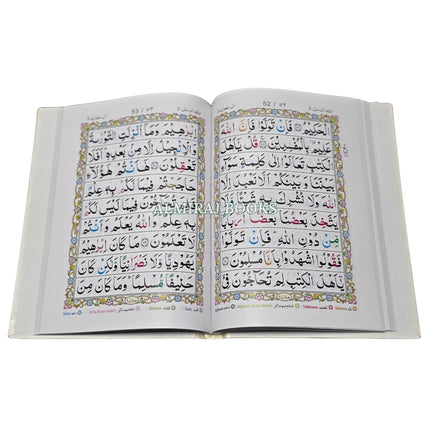 تلك الرسل ٣
52 / ٥٢
اٰل عمرٰن ٣
الْحَكِيْمُ ۝ فَاِنْ تَوَلَّوْا فَاِنَّ اللّٰهَ
عَلِيْمٌۢ بِالْمُفْسِدِيْنَ ۝ قُلْ يٰۤاَهْلَ
الْكِتٰبِ تَعَالَوْا اِلٰى كَلِمَةٍ سَوَآءٍۭ
بَيْنَنَا وَبَيْنَكُمْ اَلَّا نَعْبُدَ اِلَّا
اللّٰهَ وَلَا نُشْرِكَ بِهٖ شَيْـًٔا وَّلَا
يَتَّخِذَ بَعْضُنَا بَعْضًا اَرْبَابًا
مِّنْ دُوْنِ اللّٰهِ ؕ فَاِنْ تَوَلَّوْا
فَقُوْلُوا اشْهَدُوْا بِاَنَّا مُسْلِمُوْنَ ۝
يٰۤاَهْلَ الْكِتٰبِ لِمَ تُحَآجُّوْنَ فِيْۤ
تلك الرسل ٣
53 / ٥٣
اٰل عمرٰن ٣
اِبْرٰهِيْمَ وَمَاۤ اُنْزِلَتِ التَّوْرٰىةُ
وَالْاِنْجِيْلُ اِلَّا مِنْۢ بَعْدِهٖ ؕ اَفَلَا
تَعْقِلُوْنَ ۝ هٰۤاَنْتُمْ هٰۤؤُلَآءِ
حَاجَجْتُمْ فِيْمَا لَكُمْ بِهٖ عِلْمٌ
فَلِمَ تُحَآجُّوْنَ فِيْمَا لَيْسَ لَكُمْ
بِهٖ عِلْمٌ ؕ وَاللّٰهُ يَعْلَمُ وَاَنْتُمْ
لَا تَعْلَمُوْنَ ۝ مَا كَانَ اِبْرٰهِيْمُ
يَهُوْدِيًّا وَّلَا نَصْرَانِيًّا وَّلٰكِنْ كَانَ
حَنِيْفًا مُّسْلِمًا ؕ وَمَا كَانَ مِنَ
ALMIRAJ BOOKS